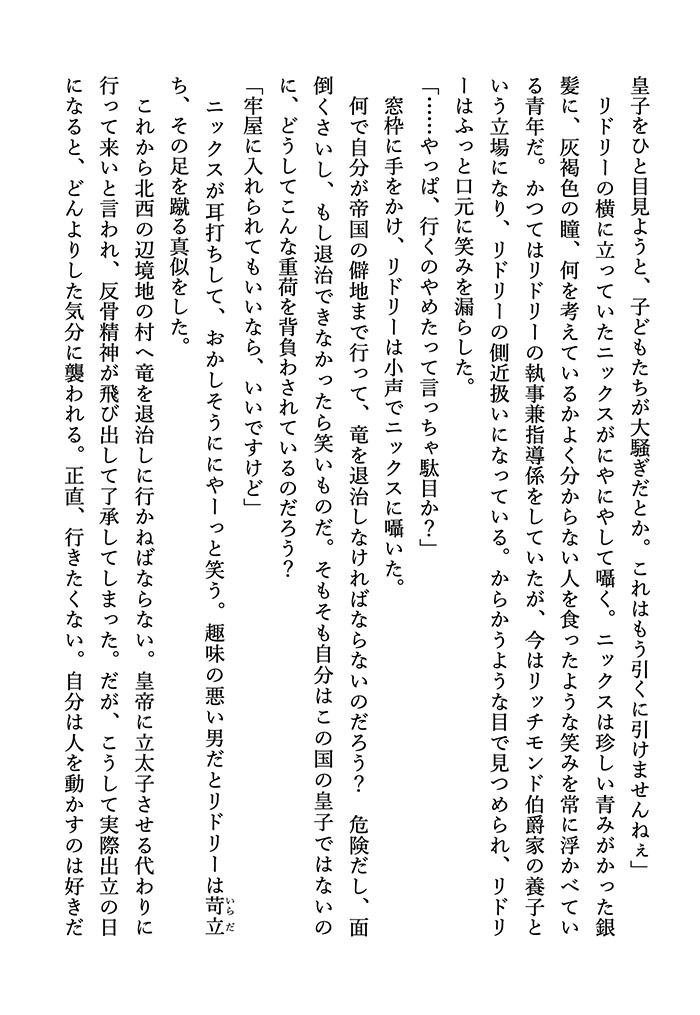 皇子をひと目見ようと、子どもたちが大騒ぎだとか。これはもう引くに引けませんねぇ」
　リドリーの横に立っていたニックスがにやにやして囁く。ニックスは珍しい青みがかった銀
髪に、灰褐色の瞳、何を考えているかよく分からない人を食ったような笑みを常に浮かべてい
る青年だ。かつてはリドリーの執事兼指導係をしていたが、今はリッチモンド伯爵家の養子と
いう立場になり、リドリーの側近扱いになっている。からかうような目で見つめられ、リドリ
ーはふっと口元に笑みを漏らした。
「……やっぱ、行くのやめたって言っちゃ駄目か？」
　窓枠に手をかけ、リドリーは小声でニックスに囁いた。
　何で自分が帝国の僻地まで行って、竜を退治しなければならないのだろう？　危険だし、面
倒くさいし、もし退治できなかったら笑いものだ。そもそも自分はこの国の皇子ではないの
に、どうしてこんな重荷を背負わされているのだろう？
「牢屋に入れられてもいいなら、いいですけど」
　ニックスが耳打ちして、おかしそうににやーっと笑う。趣味の悪い男だとリドリーは苛立いらだ
ち、その足を蹴る真似をした。
　これから北西の辺境地の村へ竜を退治しに行かねばならない。皇帝に立太子させる代わりに
行って来いと言われ、反骨精神が飛び出して了承してしまった。だが、こうして実際出立の日
になると、どんよりした気分に襲われる。正直、行きたくない。自分は人を動かすのは好きだ